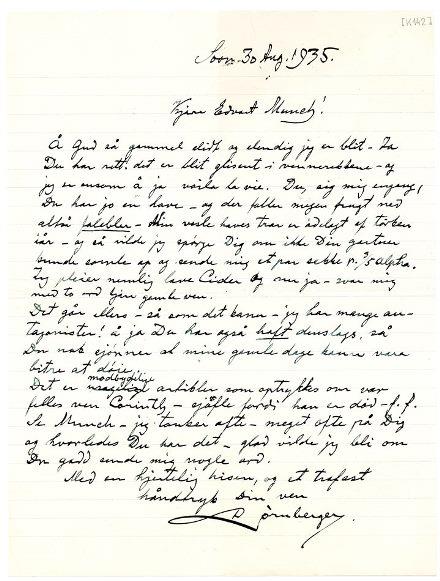 [K1142]
Soon. 30 Aug. 1935.
Kjere Edvart Munch!
Å Gud så gammel slidt og elendig jeg er blit – Ja
Du har rett. det er blit glisent i vennerekkene – og
jeg er ensom å ja voila la vie. Du, sig mig engang,
Du har jo en have – og der feller megen frugt ned
altså falebler – Min vesle haves trær er ødelagt af tørken
iår – og så vilde jeg spørge Dig om ikke Din gartner
kunde samle op og sende mig et par sekke
Jeg pleier nemlig lave Cider og nu ja – svar mig
med to ord kjere gamle ven.
Det går ellers – så som det kan – jeg har mange an-
tagonister! å ja Du har også haft denslags, så
Du nok sjönner at mine gamle dage kan være
bitre at döie.
modbydelige
Det er artikler som optrykkes om vor
felles ven Corinth – sjofle fordi han er död – f. f.
Se Munch – jeg tanker ofte – meget ofte på Dig
og hvorledes Du har det – glad vilde jeg bli om
Du gadd sende mig nogle ord.
Med en hjertelig hilsen, og et trofast
håndtryk Din ven
Dörnberger.